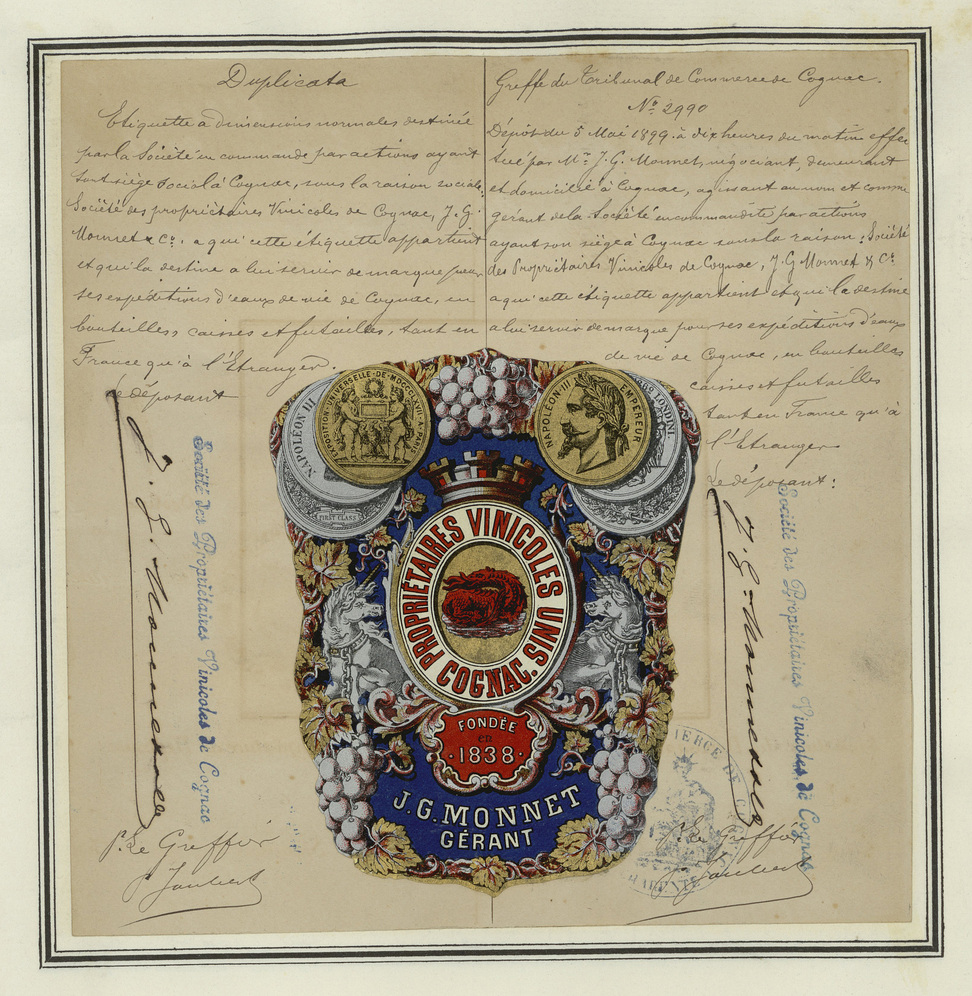 Duplicata
Etiquette a dimensions normales destinée
par la Société en commande par actions ayant
son siège social à Cognac, sous la raison sociale:
Société des propriétaires Vinicoles de Cognac, J.G.
Monnet & Co. a qui cette étiquette appartient
et qui la destine a lui servir de marque pour
ses expéditions d'eaux de vie de Cognac, en
bouteilles caisses et futailles, tant en
France qu'à l'Etranger.
Le déposant
J. G. Monnet & Co
Société des Propriétaires Vinicoles de Cognac
P. Le Greffier
Joubert
Greffe du Tribunal de Commerce de Cognac.
No 2990
Dépôt du 5 Mai 1899 à dix heures du matin effec
tué par Mr J.G. Monnet, négociant, demeurant
et domicilié à Cognac, agissant au nom et comme
gérant de la Société en commandite par actions
ayant son siège à Cognac sous la raison: Société
des Propriétaires Vinicoles de Cognac, J.G Monnet & Co
a qui cette étiquette appartient et qui la destine
a lui servir de marque pour ses expéditions d'eaux
de vie de Cognac, en bouteilles
caisses et futailles
tant en France qu'à
l'Etranger
Le déposant:
J. G. Monnet & Co
Société des Propriétaires Vinicoles de Cognac
P. Le Greffier
Joubert
CHARENTE
NAPOLÉON III
EXPOSITION UNIVERSELLE DE MDCCCLXVII A PARIS
FIRST CLASS
NAPOLEON III EMPEREUR
LONDINI
PROPRIÉTAIRES VINICOLES UNIS
COGNAC.
FONDÉE
en
·1838·
J.G. MONNET
GÉRANT